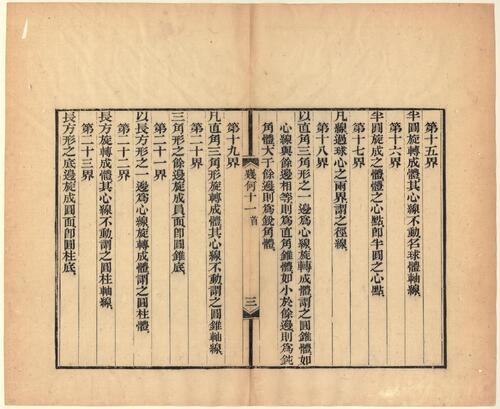 第十五界
半圓旋轉成體其心線不動名球體軸線
第十六界
半圓旋成之體體之心點即半圓之心點
第十七界
凡線過球心之兩界謂之徑線
第十八界
以直角三角形之一邊爲心線旋轉成體謂之圓錐體如
心線與餘邊相等則爲直角錐體如小於餘邊則爲鈍
角體大于餘邊則爲銳角體
幾何十一首
三
第十九界
凡直角三角形旋轉成體其心線不動謂之圓錐軸線
第二十界
三角形之餘邊旋成員面即圓錐底
第二十一界
以長方形之一邊爲心線旋轉成體謂之圓柱體
第二十二界
長方旋轉成體其心線不動謂之圓柱軸線
第二十三界
長方形之底邊旋成圓面即圓柱底